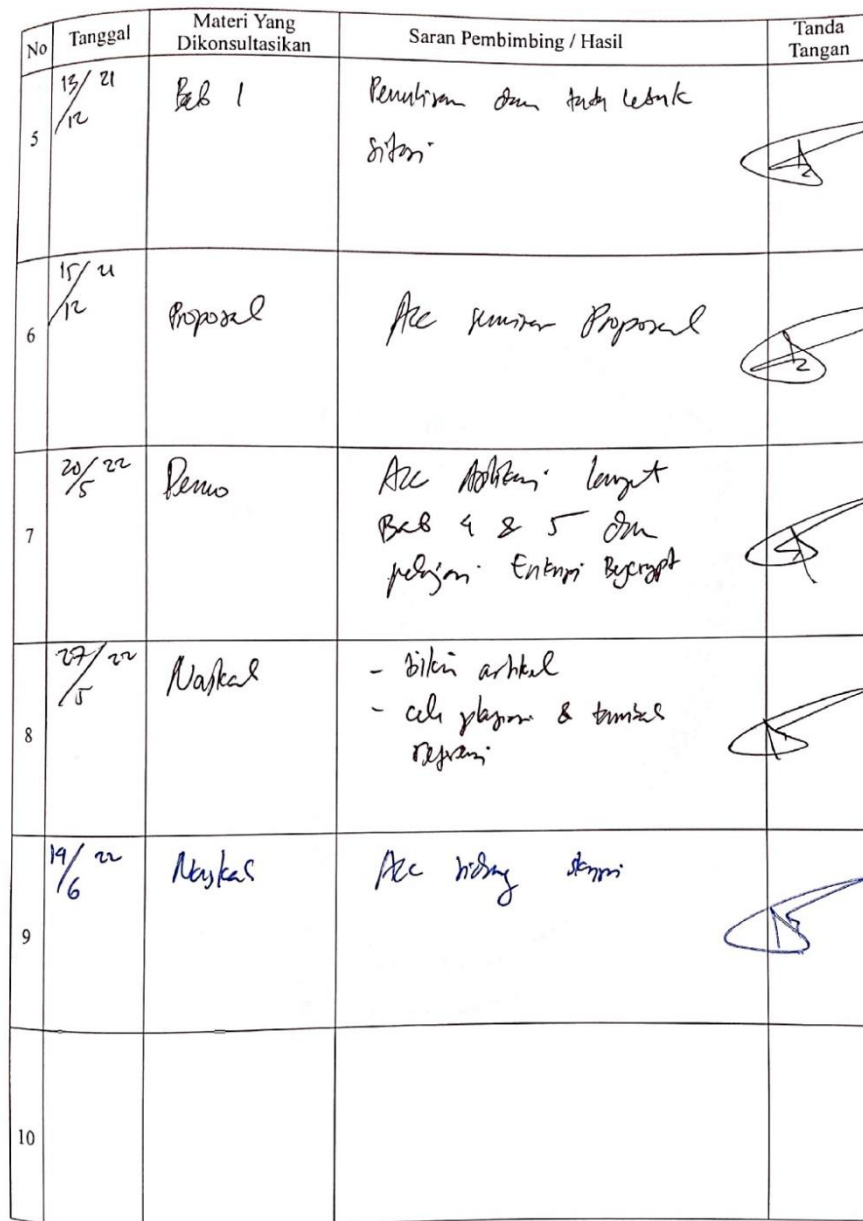 No Tanggal Materi Yang Dikonsultasikan Saran Pembimbing / Hasil Tanda Tangan
5 13/12 21 Bab 1 Penulisan dan tata letak
sitasi
6 15/12 21 Proposal Acc seminar Proposal
7 20/5 22 Demo Acc Aplikasi lanjut
Bab 4 & 5 dan
pelajari Enkripsi Bycrypt
8 27/5 22 Naskah - bikin artikel
- cek plagiasi & tambah
referensi
9 14/6 22 Naskah Acc sidang skripsi
10